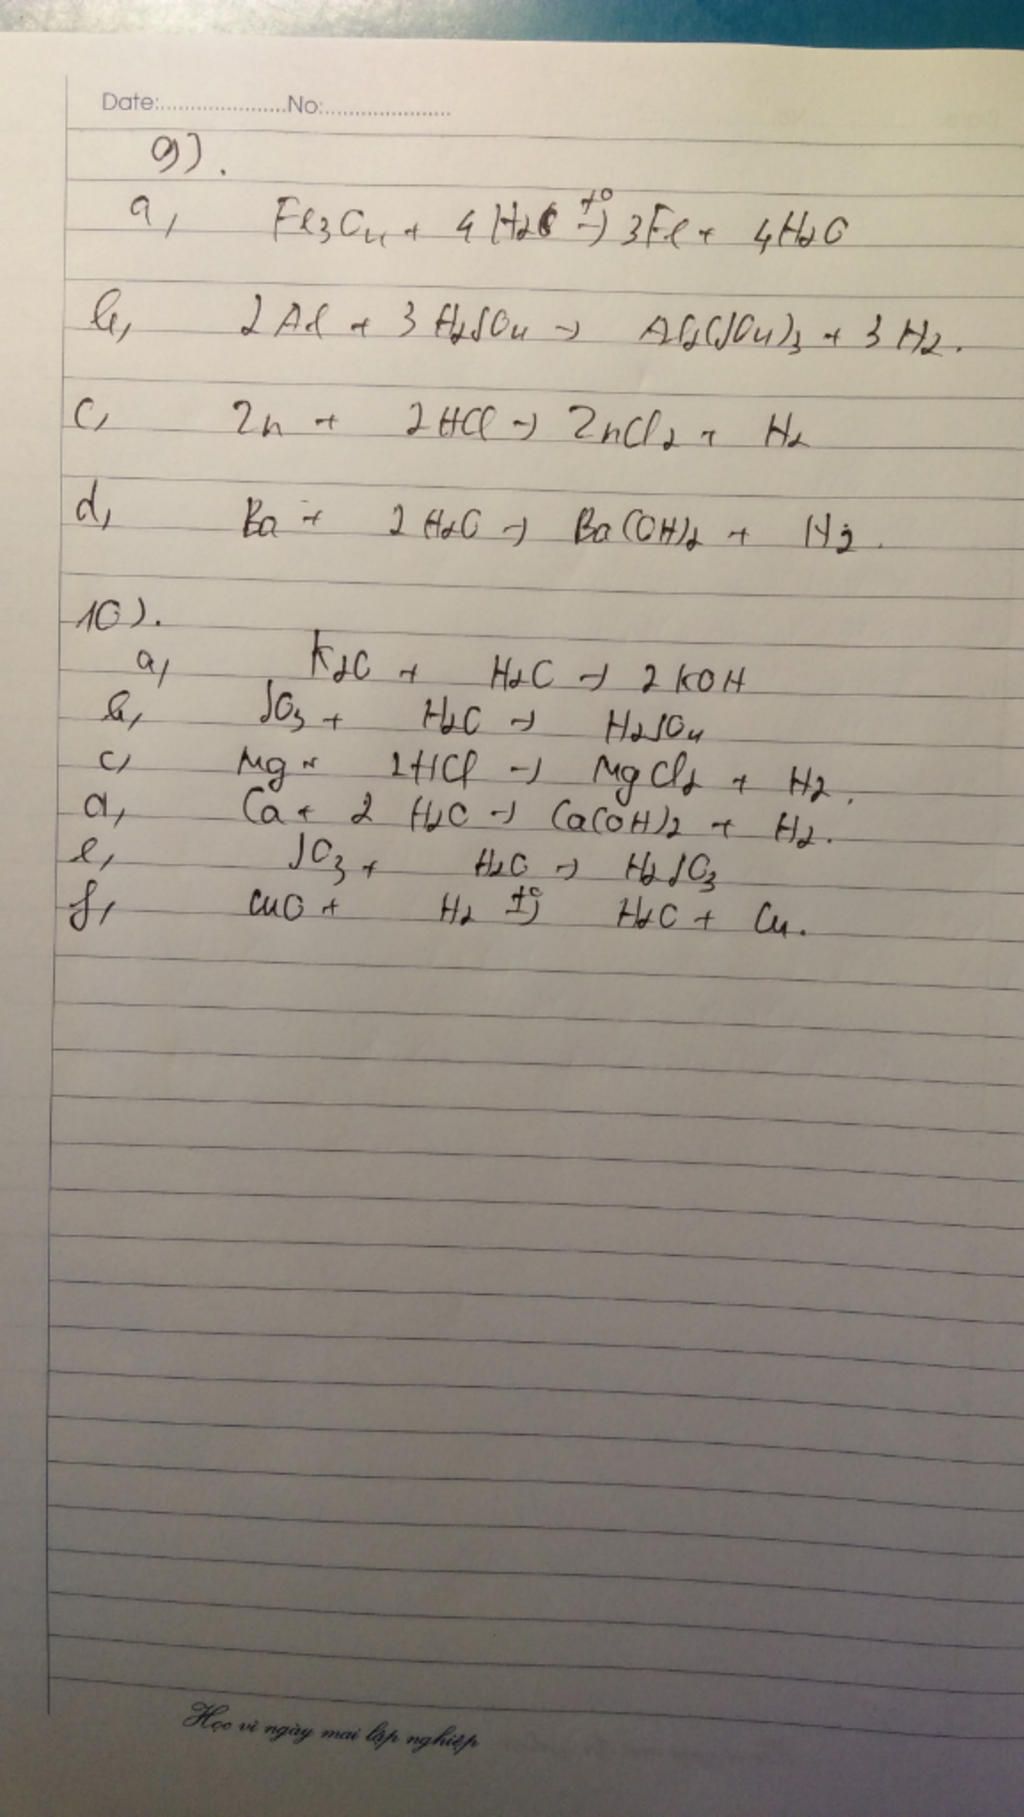 Date:......................No:......................
9).
a, Fe3O4 + 4H2O t°→ 3Fe + 4H2O
b, 2Al + 3H2SO4 → Al2(SO4)3 + 3H2.
c, Zn + 2HCl → ZnCl2 + H2
d, Ba + 2H2O → Ba(OH)2 + H2.
10).
a, K2O + H2O → 2KOH
b, SO3 + H2O → H2SO4
c, Mg + 2HCl → MgCl2 + H2.
d, Ca + 2H2O → Ca(OH)2 + H2.
e, SO3 + H2O → H2SO3
f, CuO + H2 t°→ H2O + Cu.
Học vì ngày mai lập nghiệp